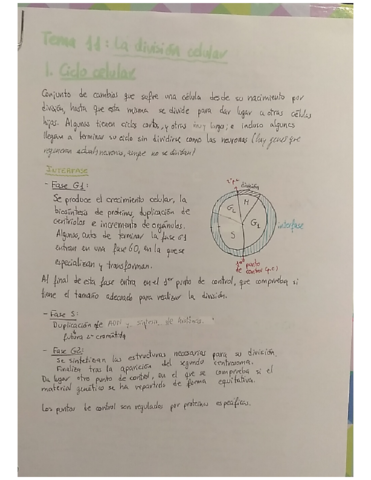 Tema 11: La división celular
1. Ciclo celular
Conjunto de cambios que sufre una célula desde su nacimiento por
división, hasta que esta misma se divide para dar lugar a otras células
hijas. Algunas tienen ciclos cortos, y otras muy largo, e incluso algunas
llegan a terminar su ciclo sin dividirse como las neuronas (Hay genes que
no se dividen)
INTERFASE
- Fase G1:
Se produce el crecimiento celular, la
biosíntesis de proteínas, duplicación de
centriolos e incremento de orgánulos.
Algunas, antes de terminar la fase G1
entran en una fase G0, en la que se
especializan y transforman.
división
M
G2
G1
S
interfase
1er punto
de control
Al final de esta fase entra en el 1er punto de control, que comprueban si
tiene el tamaño adecuado para realizar la división.
- Fase S:
Duplicación de ADN y síntesis de histonas.
futura 2ª cromátida
- Fase G2:
Se sintetizan las estructuras necesarias para su división.
Finaliza tras la aparición del segundo centrosoma.
Da lugar otro punto de control, en el que se comprueba si el
material genético se ha repartido de forma equitativa.
Los puntos de control son regulados por proteínas específicas.